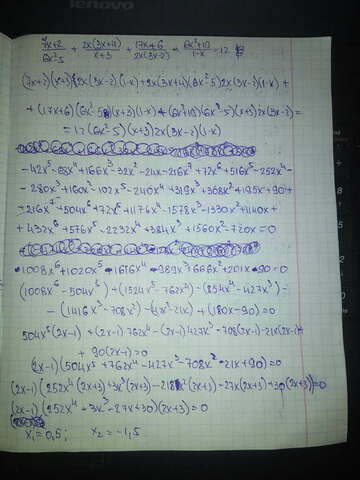 lenovo
7x+2/6x²-5 + 2x(3x+4)/x+3 + 17x+6/2x(3x-2) + 6x²+10/1-x = 12
(7x+2)(x+3)2x(3x-2)(1-x)+2x(3x+4)(6x²-5)2x(3x-2)(1-x)+
+(17x+6)(6x²-5)(x+3)(1-x)+(6x²+10)(6x²-5)(x+3)2x(3x-2)=
=12(6x²-5)(x+3)2x(3x-2)(1-x)
-42x⁵-88x⁴+166x³-32x²-24x-216x⁷+72x⁶+516x⁵-252x⁴-
-280x³+160x²-102x⁵-240x⁴+319x³+368x²+195x+90+
+216x⁷+504x⁶+72x⁵+1176x⁴-1578x³-1330x²+1140x+
+432x⁶+576x⁵-2232x⁴+384x³+1560x²-720x=0
1008x⁶+1020x⁵-1616x⁴-989x³+666x²+201x-90=0
(1008x⁶-504x⁵)+(1524x⁵-762x⁴)-(854x⁴-427x³)-
-(1416x³-708x²)-(42x²-21x)+(180x-90)=0
504x⁵(2x-1)+(2x-1)762x⁴-(2x-1)427x³-708(2x-1)-21x(2x-1)+
+90(2x-1)=0
(2x-1)(504x⁵+762x⁴-427x³-708x²-21x+90)=0
(2x-1)(252x⁴(2x+3)+3x³(2x+3)-218x²(2x+3)-27x(2x+3)+30(2x+3))=0
(2x-1)(252x⁴+3x³-27x+30)(2x+3)=0
x₁=0,5; x₂=-1,5